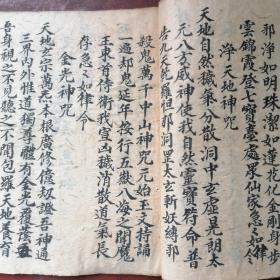 邪淨如明珠瑩如蓮花金剛身
雲錦霞發七寶臺處眾仙家急急如律令
淨天地神咒
天地自然穢氣分散洞中玄虛晃朗太
元八方威神使我自然靈寶符命普
告九天乾羅怛那洞罡太玄斬妖縛邪
殺鬼萬千中山神咒元始玉文持誦
一遍却鬼延年按行五嶽八海知聞魔
王束首侍衛我宣凶穢消散道氣長
存急急如律令
金光神咒
天地玄宗萬炁本根廣修億劫證吾神通
三界內外惟道獨尊體有金光覆
吾身視之不見聽之不聞包羅天地養育